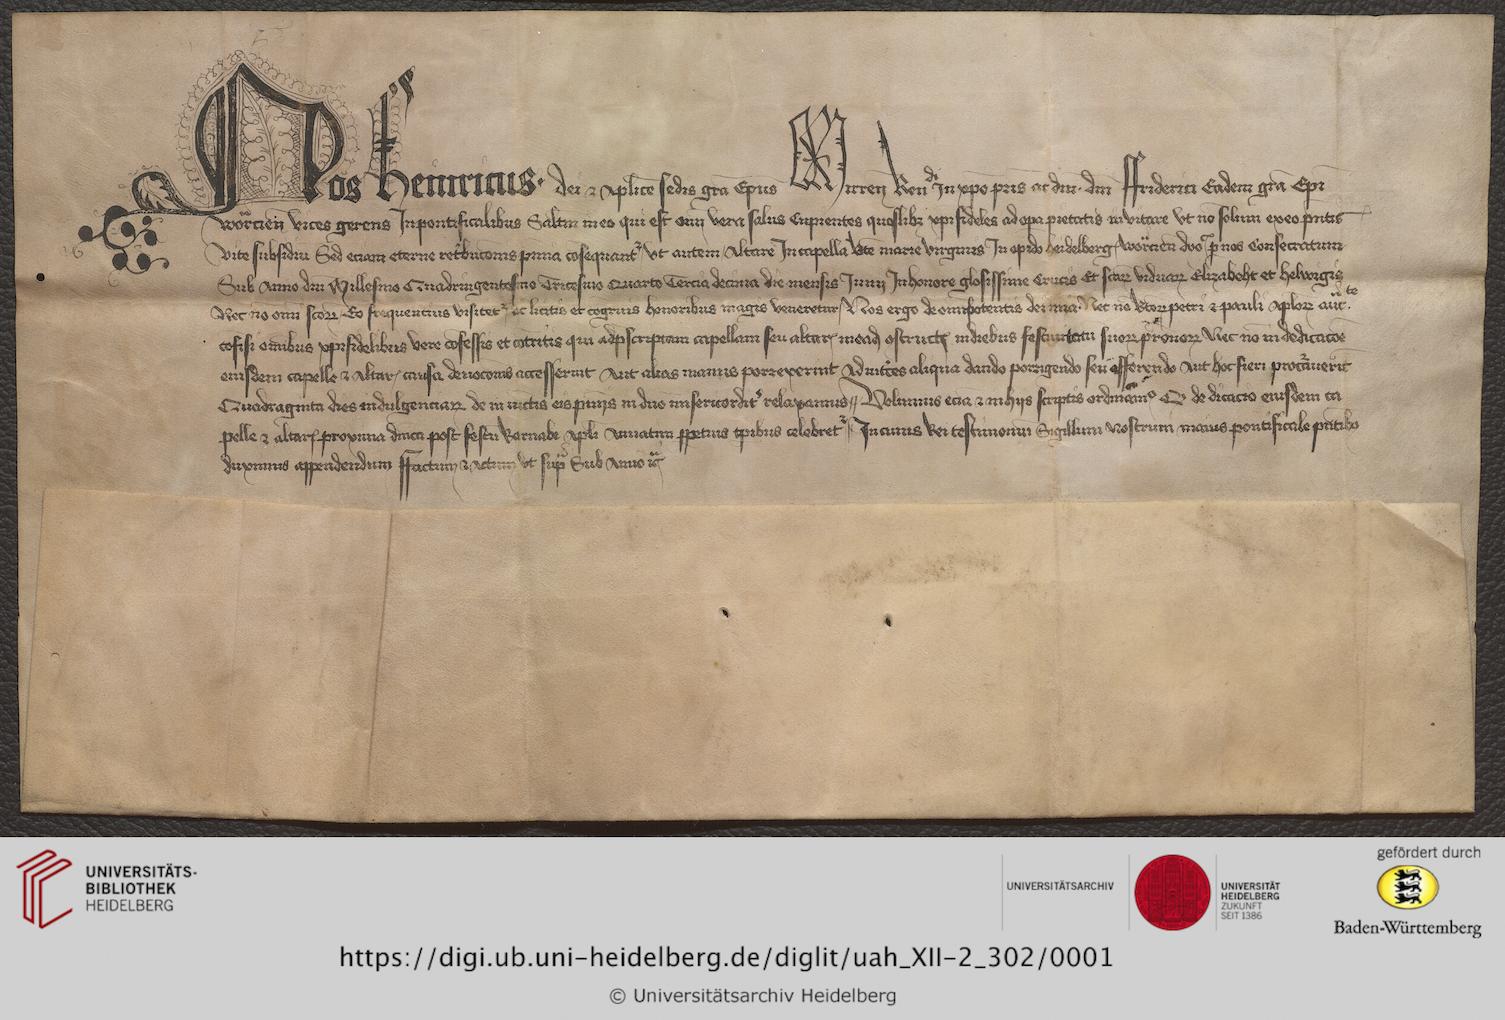 Nos Heinricus dei et aplice sedis gra Epus Miren Reuendi in xpo pris ac dni dni ffriderici Eadem gra Epi
wormacien vices gerens In pontificalibus Saltm in eo qui est omi vera salus Cupientes quoslibz xpifideles ad opa pietatis invitare vt no solum ex eo pntis
vite subsidiu Sed eciam eterne retbucionis pmia cosequant vt autem Altare In capella bte marie virginis In opido heidelberg wormacien dyoc p nos Consecratum
Sub Anno dni Millesimo Quadringentesimo Tricesimo Quarto Tercia decima die mensis Junij In honore glosissime Crucis Et scar viduar Elizabeht et helwigis
Nec no omi scorr Eo frequencius visitet ac licitis et cogruis honoribus magis veneretur Nos ergo de omipotentis dei mia Nec no btorr petri et pauli Aplorr aucte
cofisi omibus xpifidelibus vere cofessis et cotritis qui ad pscriptam capellam seu altare in diebus festiuitatu suorr pronorr Nec no in dedicacoe
eiusdem capelle et Altar causa deuocionis accesserint Aut alias manus porrexerint Adiutices aliqua dando porrigendo seu offerendo Aut hoc fieri procauerit
Quadraginta dies indulgenciarr de iniuctis eis pnijs in dno misericordit relaxamus Volumus ecia et in hijs scriptis ordinam Q dedicacio eiusdem ca
pelle et altar proxima dnica post festu Barnabe Apli Annatim ppetuis tpibus celebret In cuius Rei testimonium Sigillum Nostrum maius pontificale pntibo
duximus appendendum ffactum et Actum Vt supra Sub Anno
UNIVERSITÄTS-
BIBLIOTHEK
HEIDELBERG
UNIVERSITÄTSARCHIV
UNIVERSITÄT
HEIDELBERG
ZUKUNFT
SEIT 1386
gefördert durch
Baden-Württemberg
https://digi.ub.uni-heidelberg.de/diglit/uah_XII-2_302/0001
© Universitätsarchiv Heidelberg